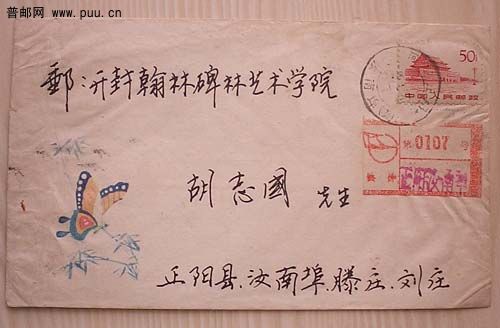 普邮网 www.puu.cn
50
中国人民邮政
第 0107 号
郵:开封翰林碑林艺术学院
胡志國 先生
正阳县、汝南埠、滕庄、刘庄